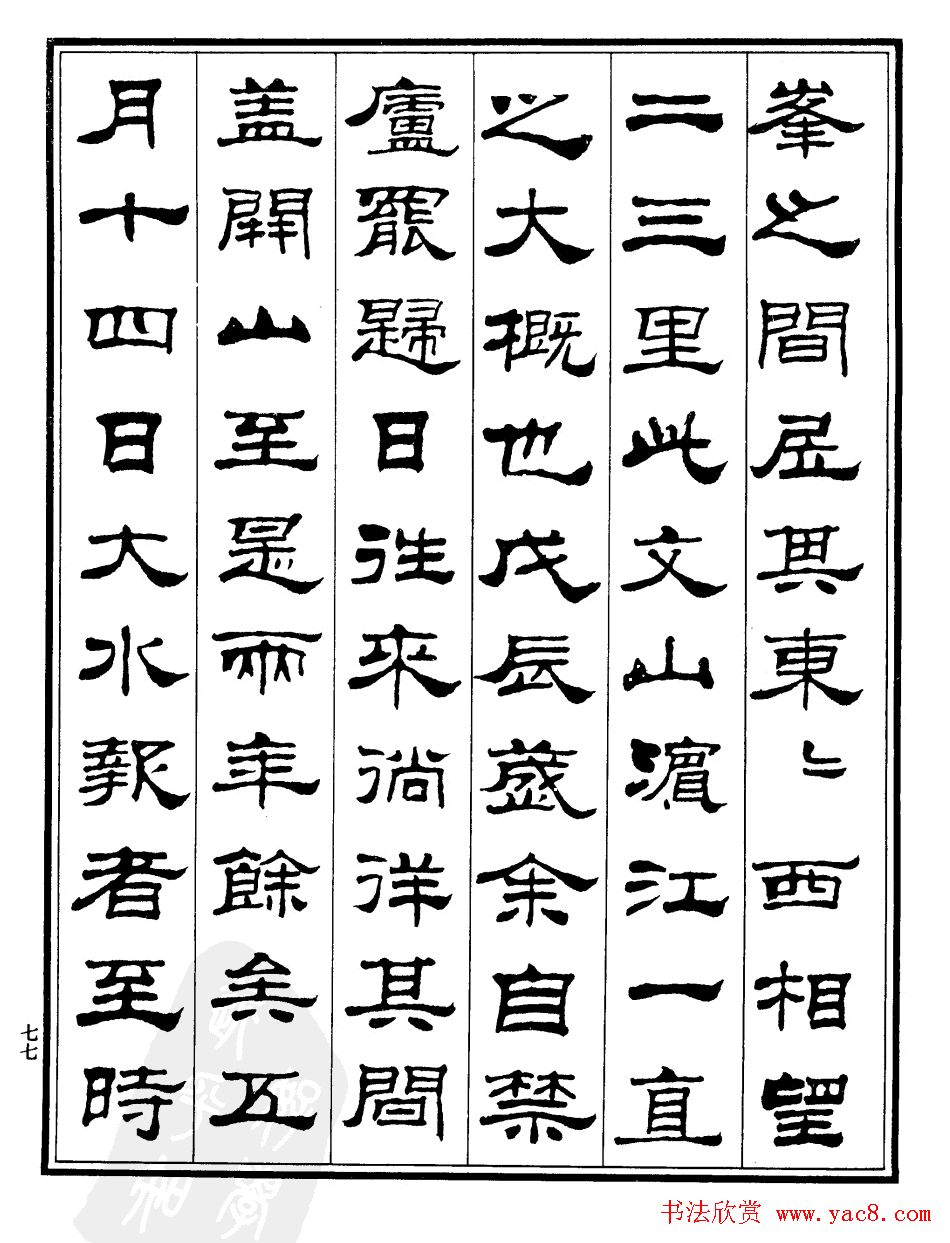 峯之間居其東〻西相望
二三里此文山濵江一直
之大概也戊辰歲余自禁
廬罷歸日往來徜徉其間
盖開山至是兩年餘矣五
月十四日大水報者至時
七七
书法欣赏 www.yac8.com